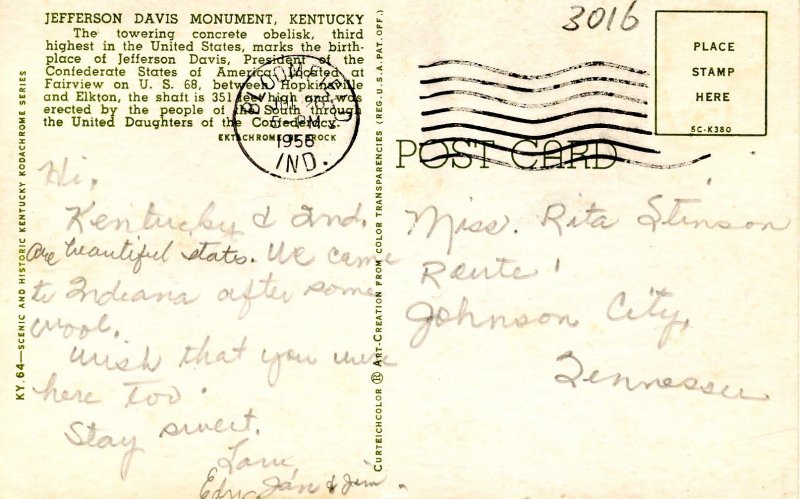 JEFFERSON DAVIS MONUMENT, KENTUCKY
The towering concrete obelisk, third
highest in the United States, marks the birth-
place of Jefferson Davis, President of the
Confederate States of America. Located at
Fairview on U. S. 68, between Hopkinsville
and Elkton, the shaft is 351 feet high and was
erected by the people of the South through
the United Daughters of the Confederacy.
EKTACHROME BY BROCK
BLOOMFIELD
JUL
5 PM
1956
IND.
KY. 64—SCENIC AND HISTORIC KENTUCKY KODACHROME SERIES
Hi,
Kentucky & Ind.
are beautiful states. We came
to Indiana after some
wool.
Wish that you were
here Too.
Stay sweet.
Love,
Jan & Jim
CURTEICHCOLOR ART-CREATION FROM COLOR TRANSPARENCIES (REG. U.S.A. PAT. OFF.)
3016
PLACE
STAMP
HERE
5C-K380
POST CARD
Miss. Rita Stinson
Route 1
Johnson City,
Tennessee